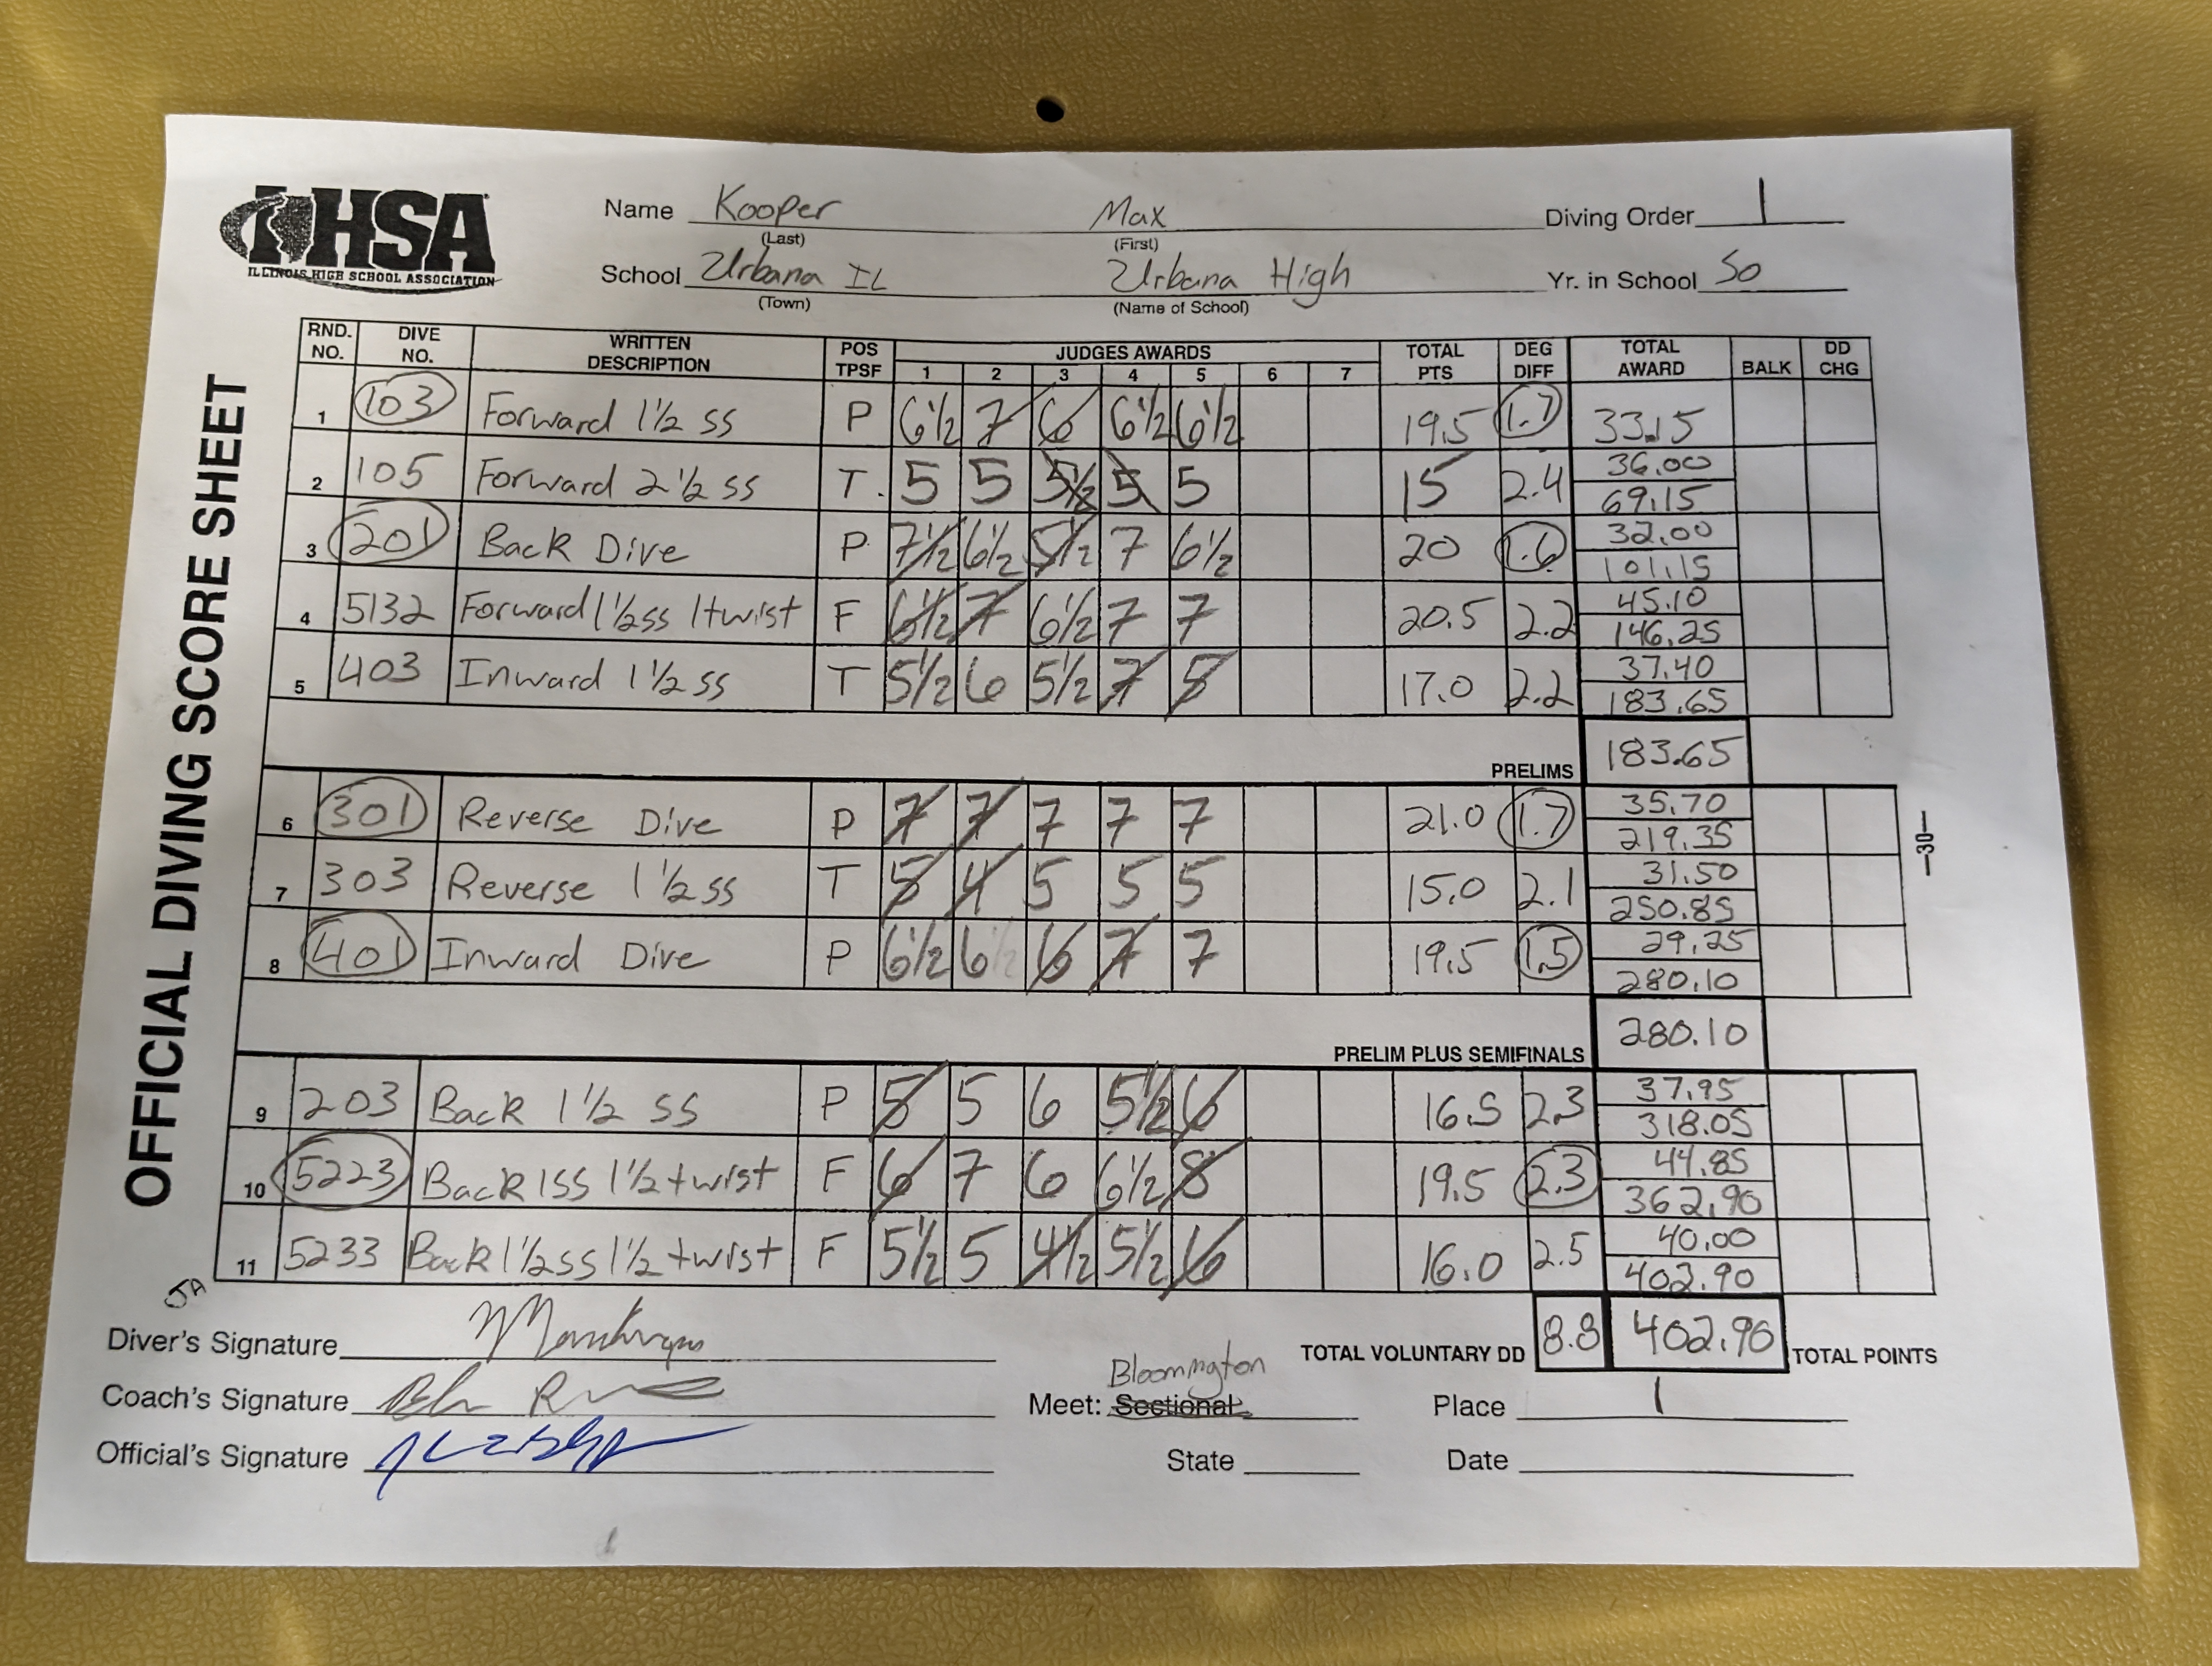 IHSA
ILLINOIS HIGH SCHOOL ASSOCIATION
OFFICIAL DIVING SCORE SHEET
Name Kooper Max Diving Order 1
(Last) (First)
School Urbana IL Urbana High Yr. in School So
(Town) (Name of School)
RND. NO. DIVE NO. WRITTEN DESCRIPTION POS TPSF JUDGES AWARDS 1 2 3 4 5 6 7 TOTAL PTS DEG DIFF TOTAL AWARD BALK DD CHG
1 103 Forward 1½ ss P 6½ 7 6 6½ 6½ 19.5 1.7 33.15
2 105 Forward 2½ ss T. 5 5 5½ 5 5 15 2.4 36.00
69.15
3 201 Back Dive P 7½ 6½ 5½ 7 6½ 20 1.6 32.00
101.15
4 5132 Forward 1½ss 1twist F 6½ 7 6½ 7 7 20.5 2.2 45.10
146.25
5 403 Inward 1½ ss T 5½ 6 5½ 7 5 17.0 2.2 37.40
183.65
PRELIMS 183.65
6 301 Reverse Dive P 7 7 7 7 7 21.0 1.7 35.70
219.35
7 303 Reverse 1½ ss T 5 4 5 5 5 15.0 2.1 31.50
250.85
8 401 Inward Dive P 6½ 6 6 7 7 19.5 1.5 29.25
280.10
PRELIM PLUS SEMIFINALS 280.10
9 203 Back 1½ ss P 5 5 6 5½ 6 16.5 2.3 37.95
318.05
10 5223 Back 1SS 1½ twist F 6 7 6 6½ 8 19.5 2.3 44.85
362.90
11 5233 Back 1½ss 1½ twist F 5½ 5 4½ 5½ 6 16.0 2.5 40.00
402.90
JA
TOTAL VOLUNTARY DD 8.8 402.90 TOTAL POINTS
Diver's Signature
Coach's Signature
Official's Signature
Bloomington
Meet: Sectional Place 1
State Date
—30—